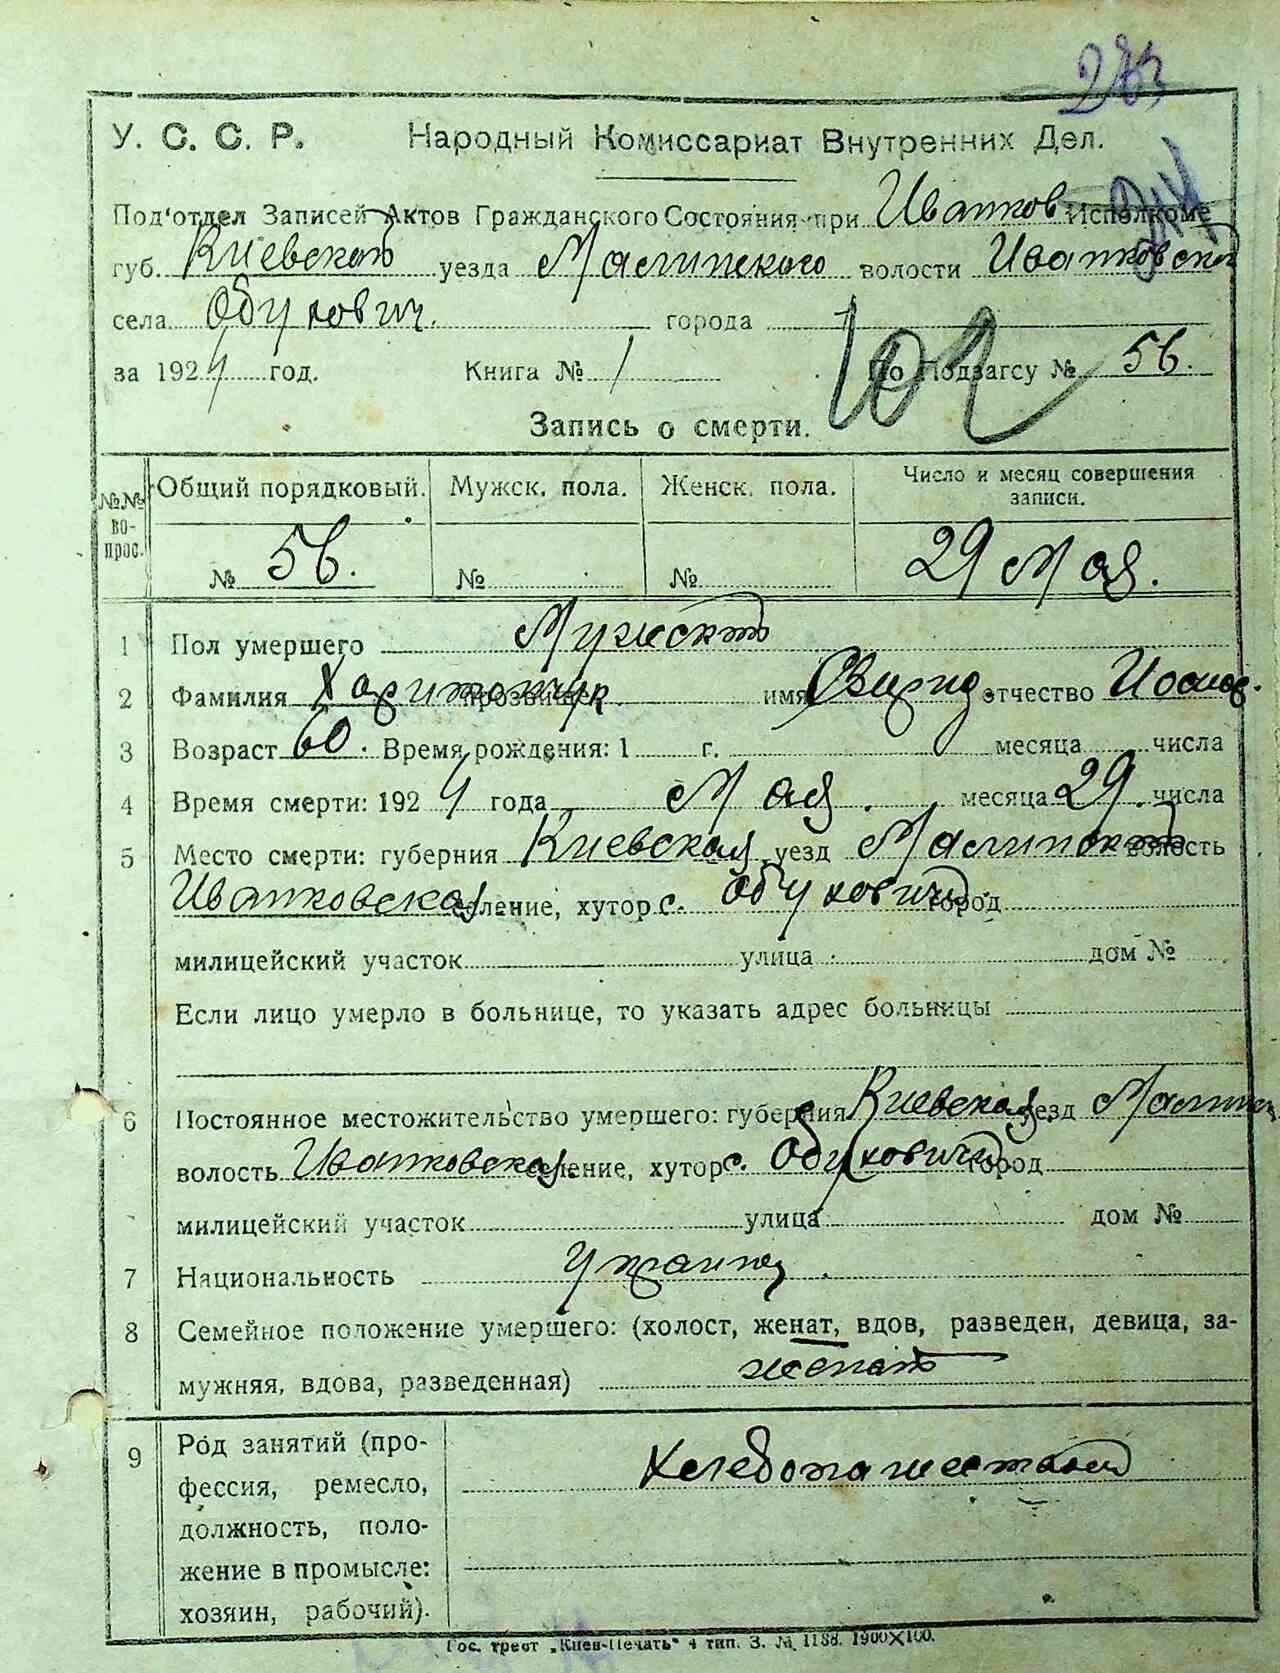 283
У. С. С. Р. Народный Комиссариат Внутренних Дел.
Под'отдел Записей Актов Гражданского Состояния при Иванков Исполкоме
губ. Киевской уезда Малинского волости Иванковской
села Обуховичи. города
за 1924 год. Книга № 1 По Подзагсу № 56.
102
Запись о смерти.
№№ во-прос. Общий порядковый. Мужск. пола. Женск. пола. Число и месяц совершения записи.
№ 56. № № 29 Мая.
1 Пол умершего Мужской
2 Фамилия Харитончук прозвище имя Свирид отчество Иосиф.
3 Возраст 60. Время рождения: 1 г. месяца числа
4 Время смерти: 1924 года Мая. месяца 29. числа
5 Место смерти: губерния Киевская уезд Малинский волость
Иванковская селение, хутор с. Обуховичи город
милицейский участок улица дом №
Если лицо умерло в больнице, то указать адрес больницы
6 Постоянное местожительство умершего: губерния Киевская уезд Малин
волость Иванковская селение, хутор с. Обуховичи город
милицейский участок улица дом №
7 Национальность Украинец
8 Семейное положение умершего: (холост, женат, вдов, разведен, девица, за-
мужняя, вдова, разведенная) женат
9 Род занятий (про-
фессия, ремесло, Хлебопашество
должность, поло-
жение в промысле:
хозяин, рабочий).
Гос. трест „Киев-Печать" 4 тип. З. № 1188. 1900×100.